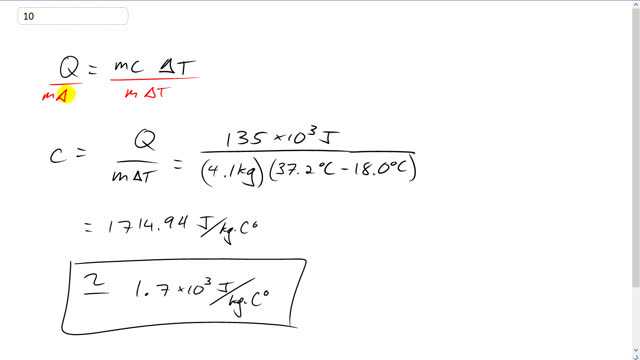 10
Q = mc ΔT
mΔ mΔT
c = Q / mΔT = 135 × 10³ J / (4.1kg)(37.2°C − 18.0°C)
= 1714.94 J/kg·C°
≃ 1.7 × 10³ J/kg·C°